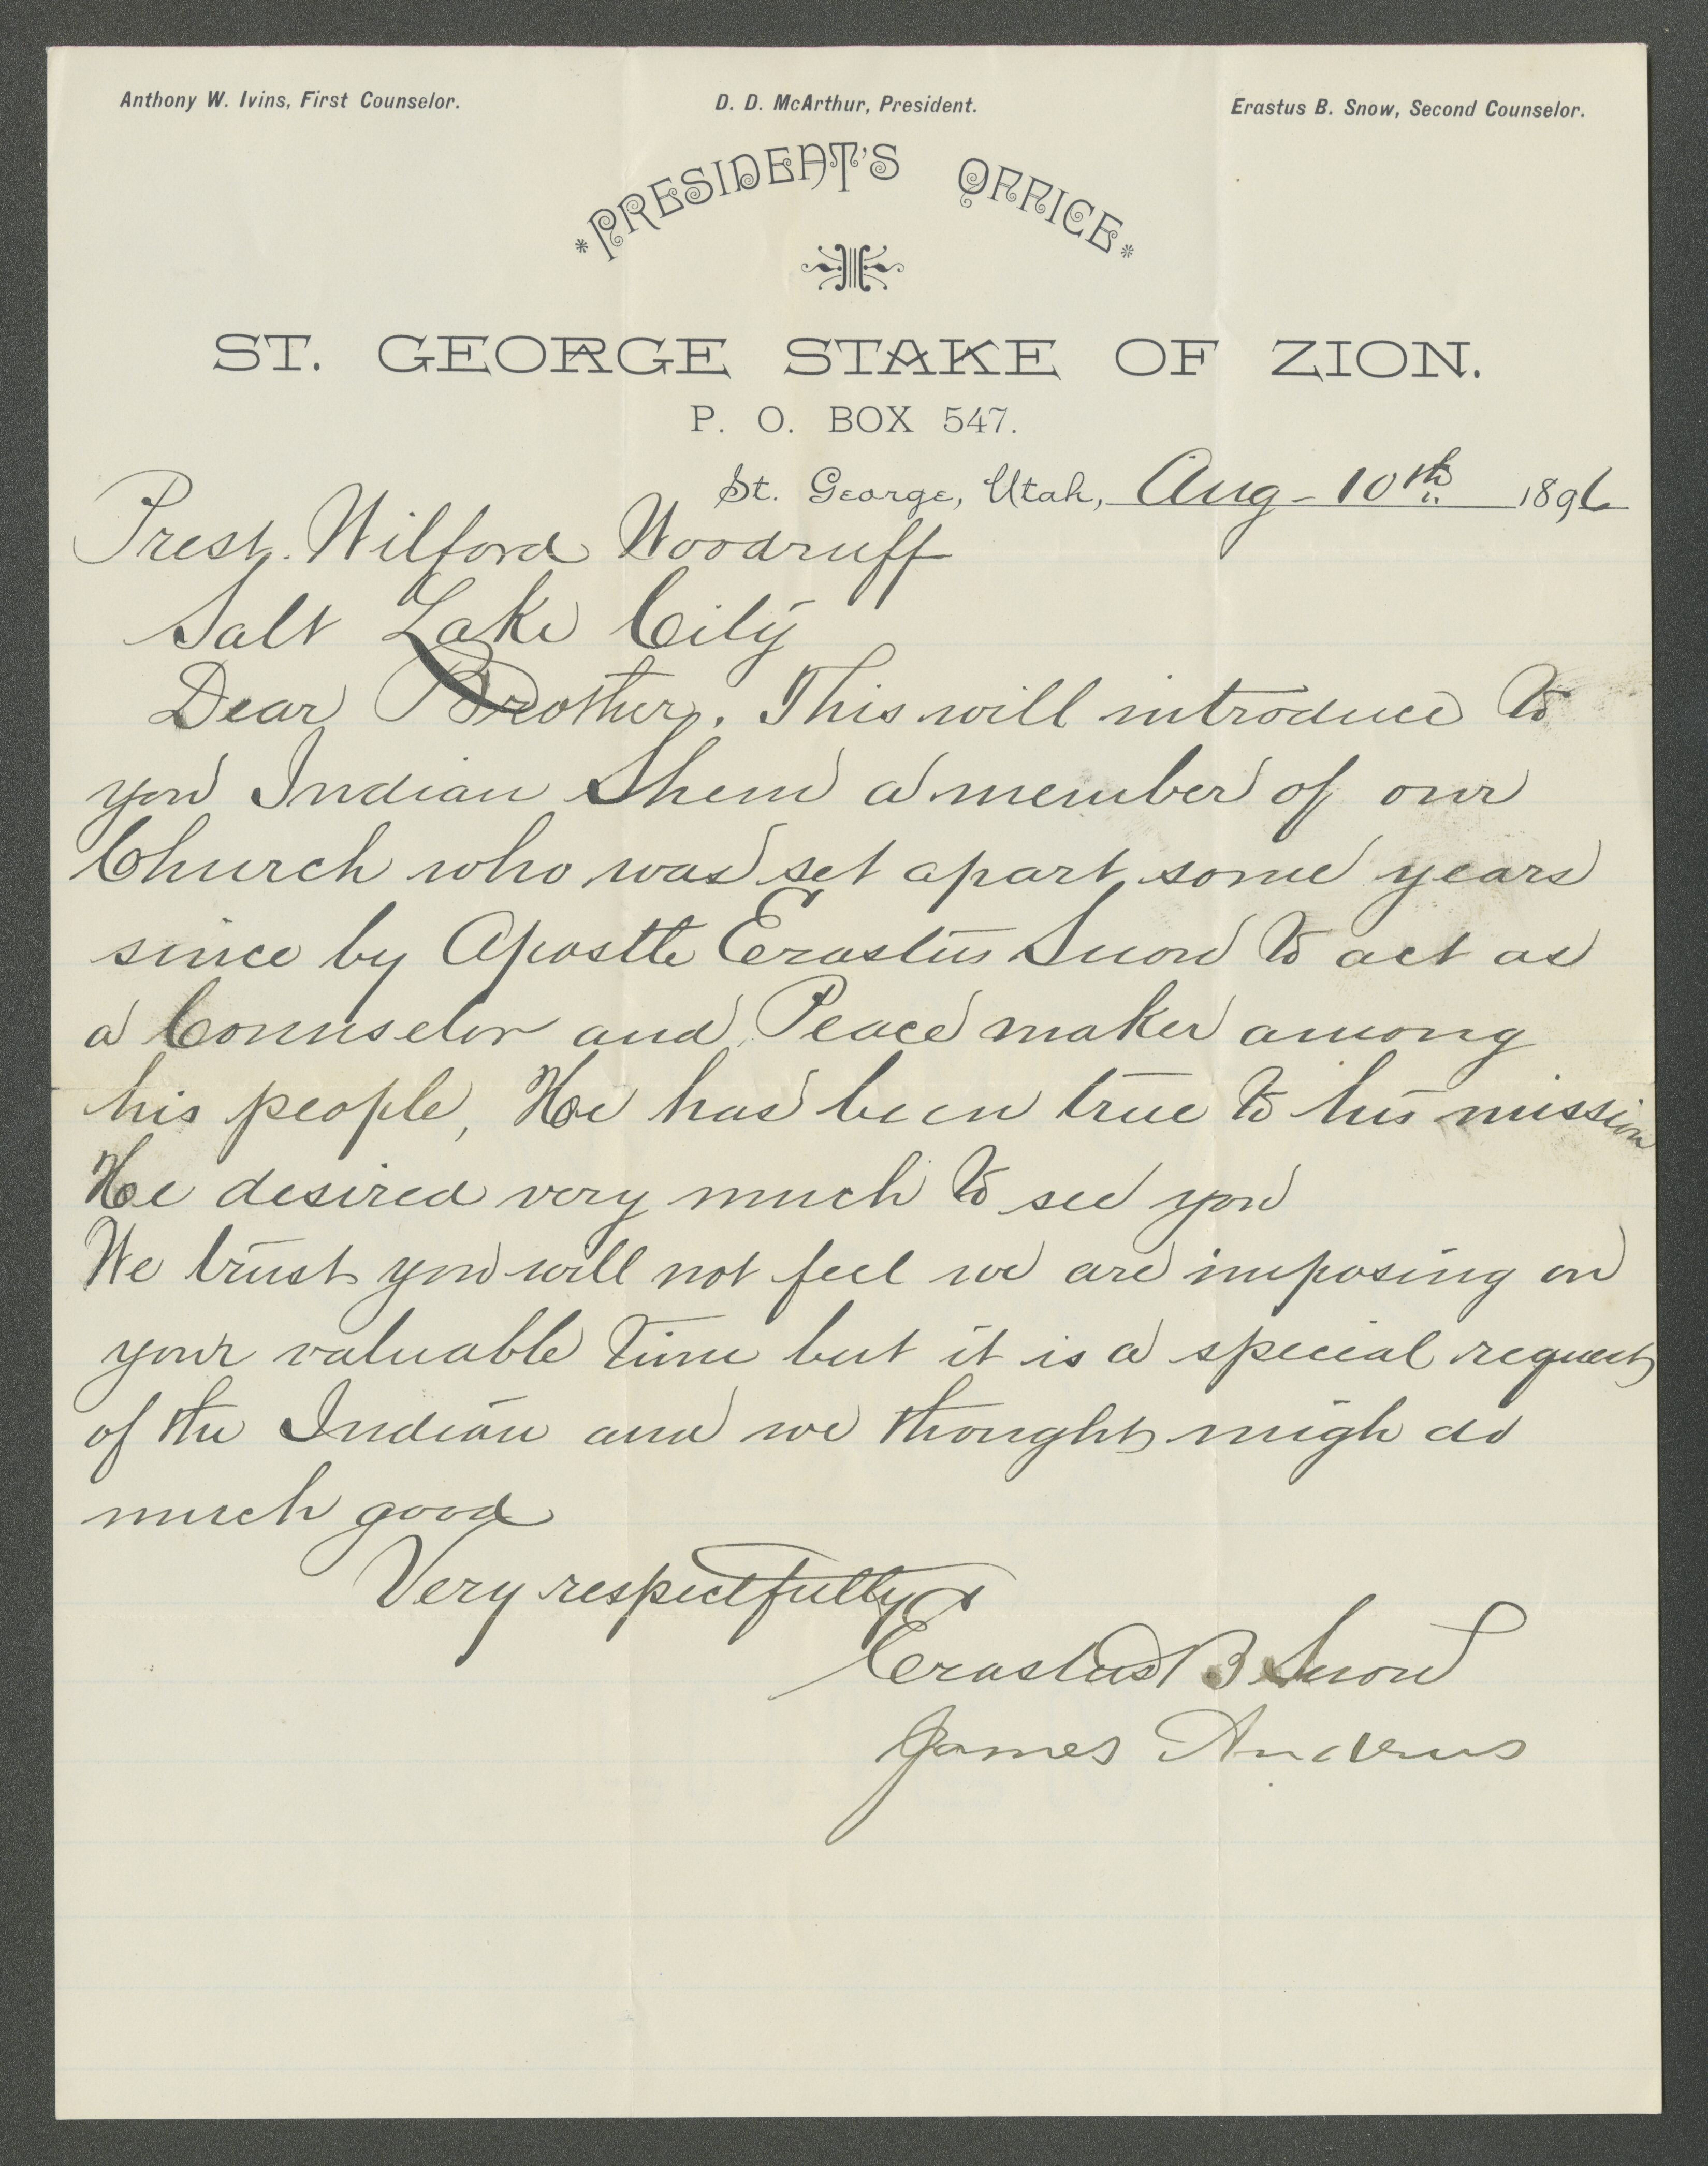 Anthony W. Ivins, First Counselor. D. D. McArthur, President. Erastus B. Snow, Second Counselor.
*PRESIDENT'S OFFICE*
ST. GEORGE STAKE OF ZION.
P. O. BOX 547.
St. George, Utah, Aug - 10th 1896
Prest. Wilford Woodruff
Salt Lake City
Dear Brother. This will introduce to
you Indian Shem a member of our
Church who was set apart some years
since by Apostle Erastus Snow to act as
a Counselor and Peace maker among
his people, He has been true to his mission
He desired very much to see you
We trust you will not feel we are imposing on
your valuable time but it is a special request
of the Indian and we thought migh do
much good
Very respectfully
Erastus B Snow
James Andrus